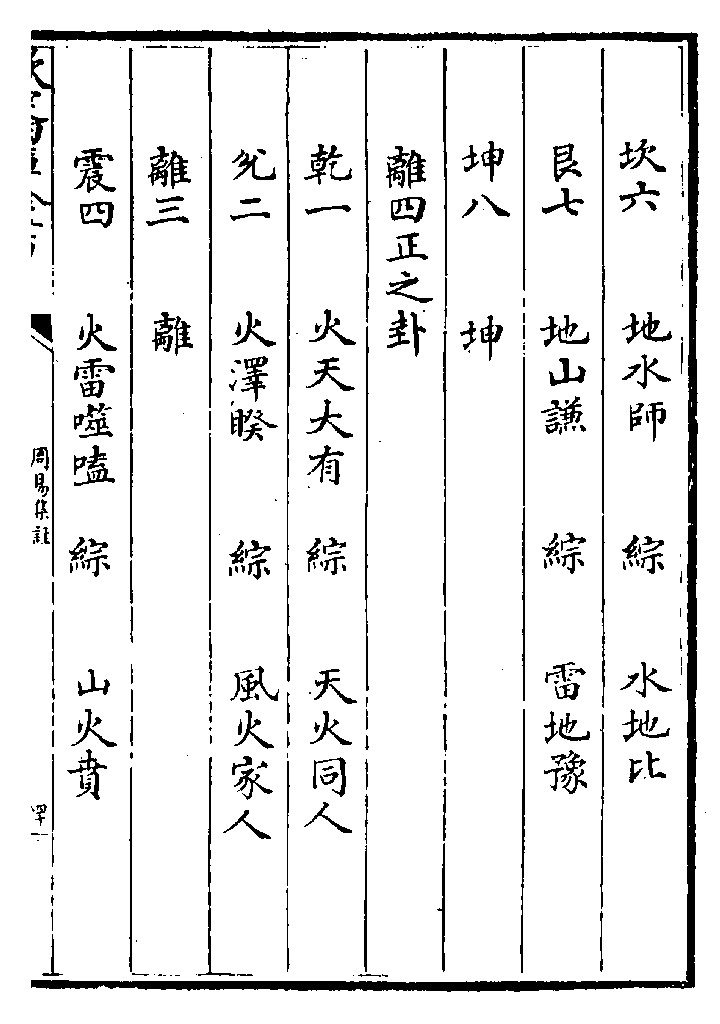 坎六　地水師　綜　水地比
艮七　地山謙　綜　雷地豫
坤八　坤
離四正之卦
乾一　火天大有　綜　天火同人
兌二　火澤睽　綜　風火家人
離三　離
震四　火雷噬嗑　綜　山火賁
周易集註